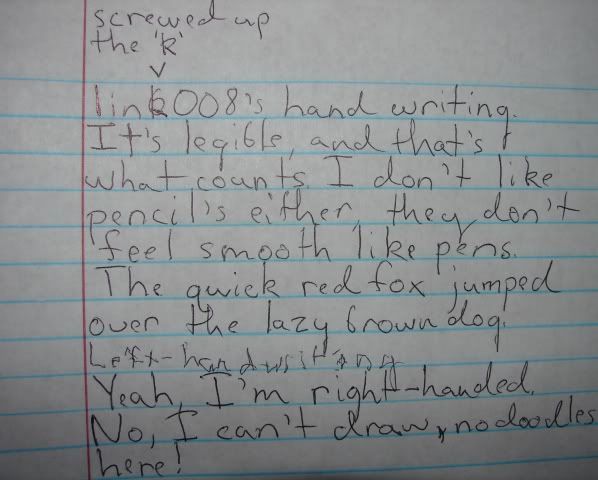 screwed up
the 'k'
link008's hand writing.
It's legible, and that's
what counts. I don't like
pencil's either, they don't
feel smooth like pens.
The quick red fox jumped
over the lazy brown dog.
Left-handwriting
Yeah, I'm right-handed.
No, I can't draw, no doodles
here!